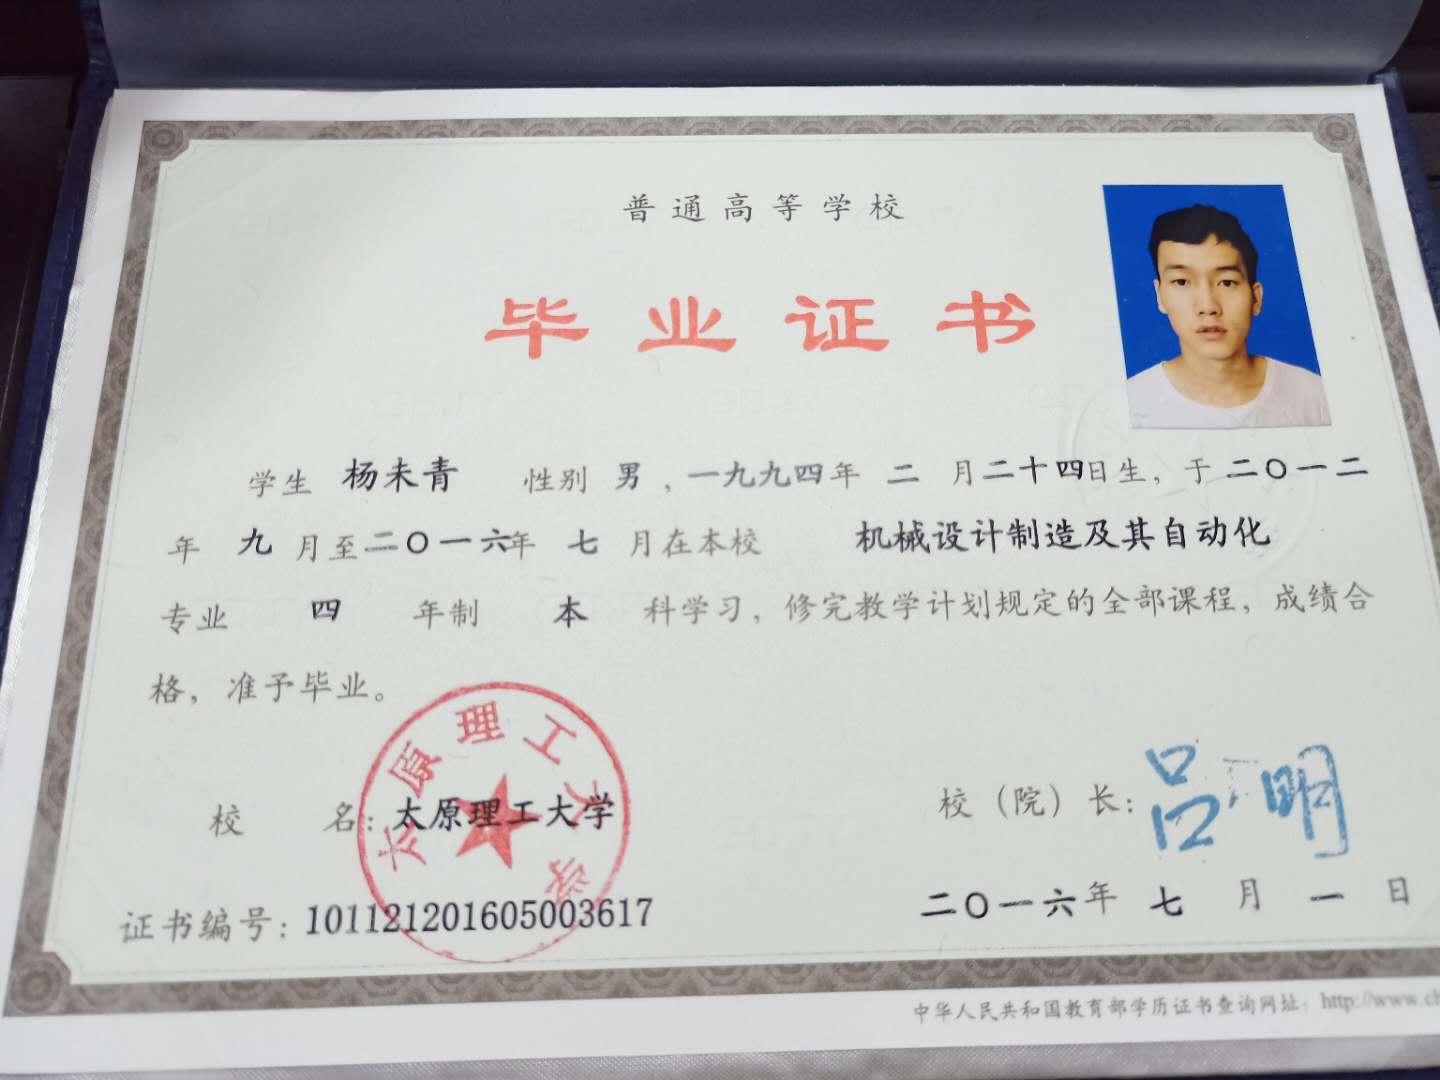 普通高等学校
毕业证书
学生 杨未青 性别 男，一九九四年 二 月二十四日生，于 二〇一二
年 九 月至二〇一六年 七 月在本校 机械设计制造及其自动化
专业 四 年制 本 科学习，修完教学计划规定的全部课程，成绩合
格，准予毕业。
太原理工大学
校 名：太原理工大学
校（院）长：吕明
证书编号：101121201605003617
二〇一六年 七 月 一 日
中华人民共和国教育部学历证书查询网址：http://www.ch